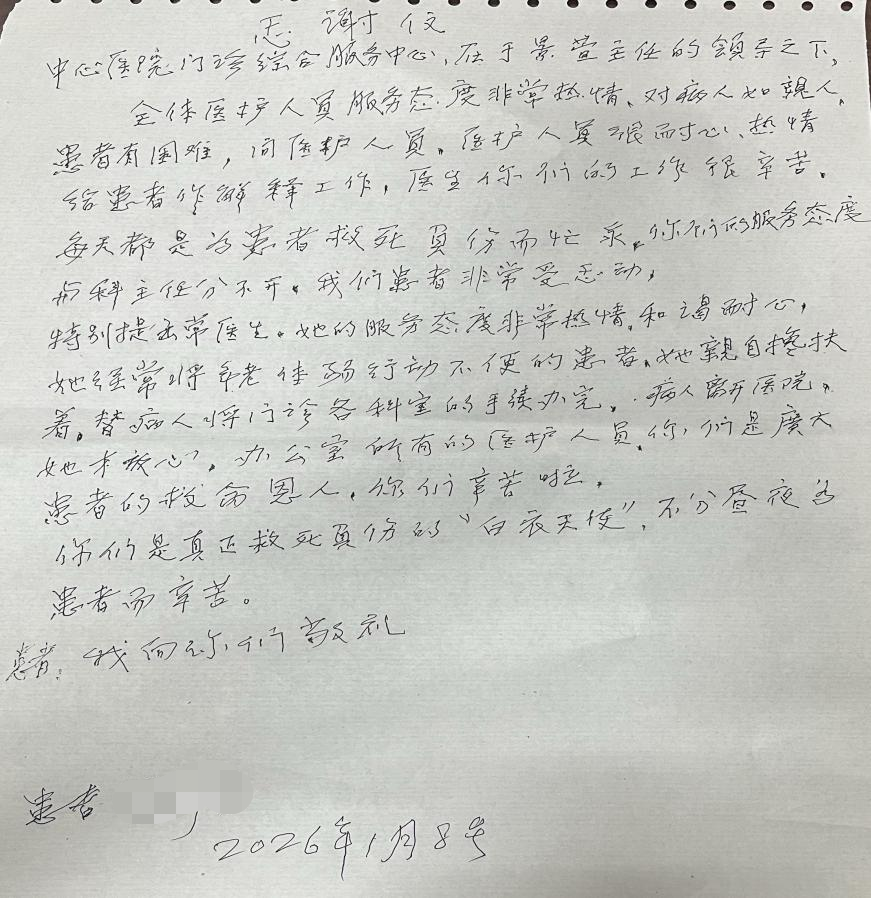 感谢信
中心医院门诊综合服务中心,在于景萱主任的领导之下,
全体医护人员服务态度非常热情、对病人如親人,
患者有困难,问医护人员。医护人员很耐心、热情
给患者作解释工作,医生你们的工作很辛苦。
每天都是为患者救死负伤而忙录。你们的服务态度
与科主任分不开。我们患者非常受感动,
特别提出常医生。她的服务态度非常热情,和谒耐心,
她经常将年老体弱行动不便的患者,她親自搀扶
着,替病人将门诊各科室的手续办完,病人离开医院,
她才放心,办公室所有的医护人员,你们是广大
患者的救命恩人,你们辛苦啦。
你们是真正救死负伤的“白衣天使”,不分昼夜为
患者而辛苦。
患者:我向你们敬礼
患者
2026年1月8号